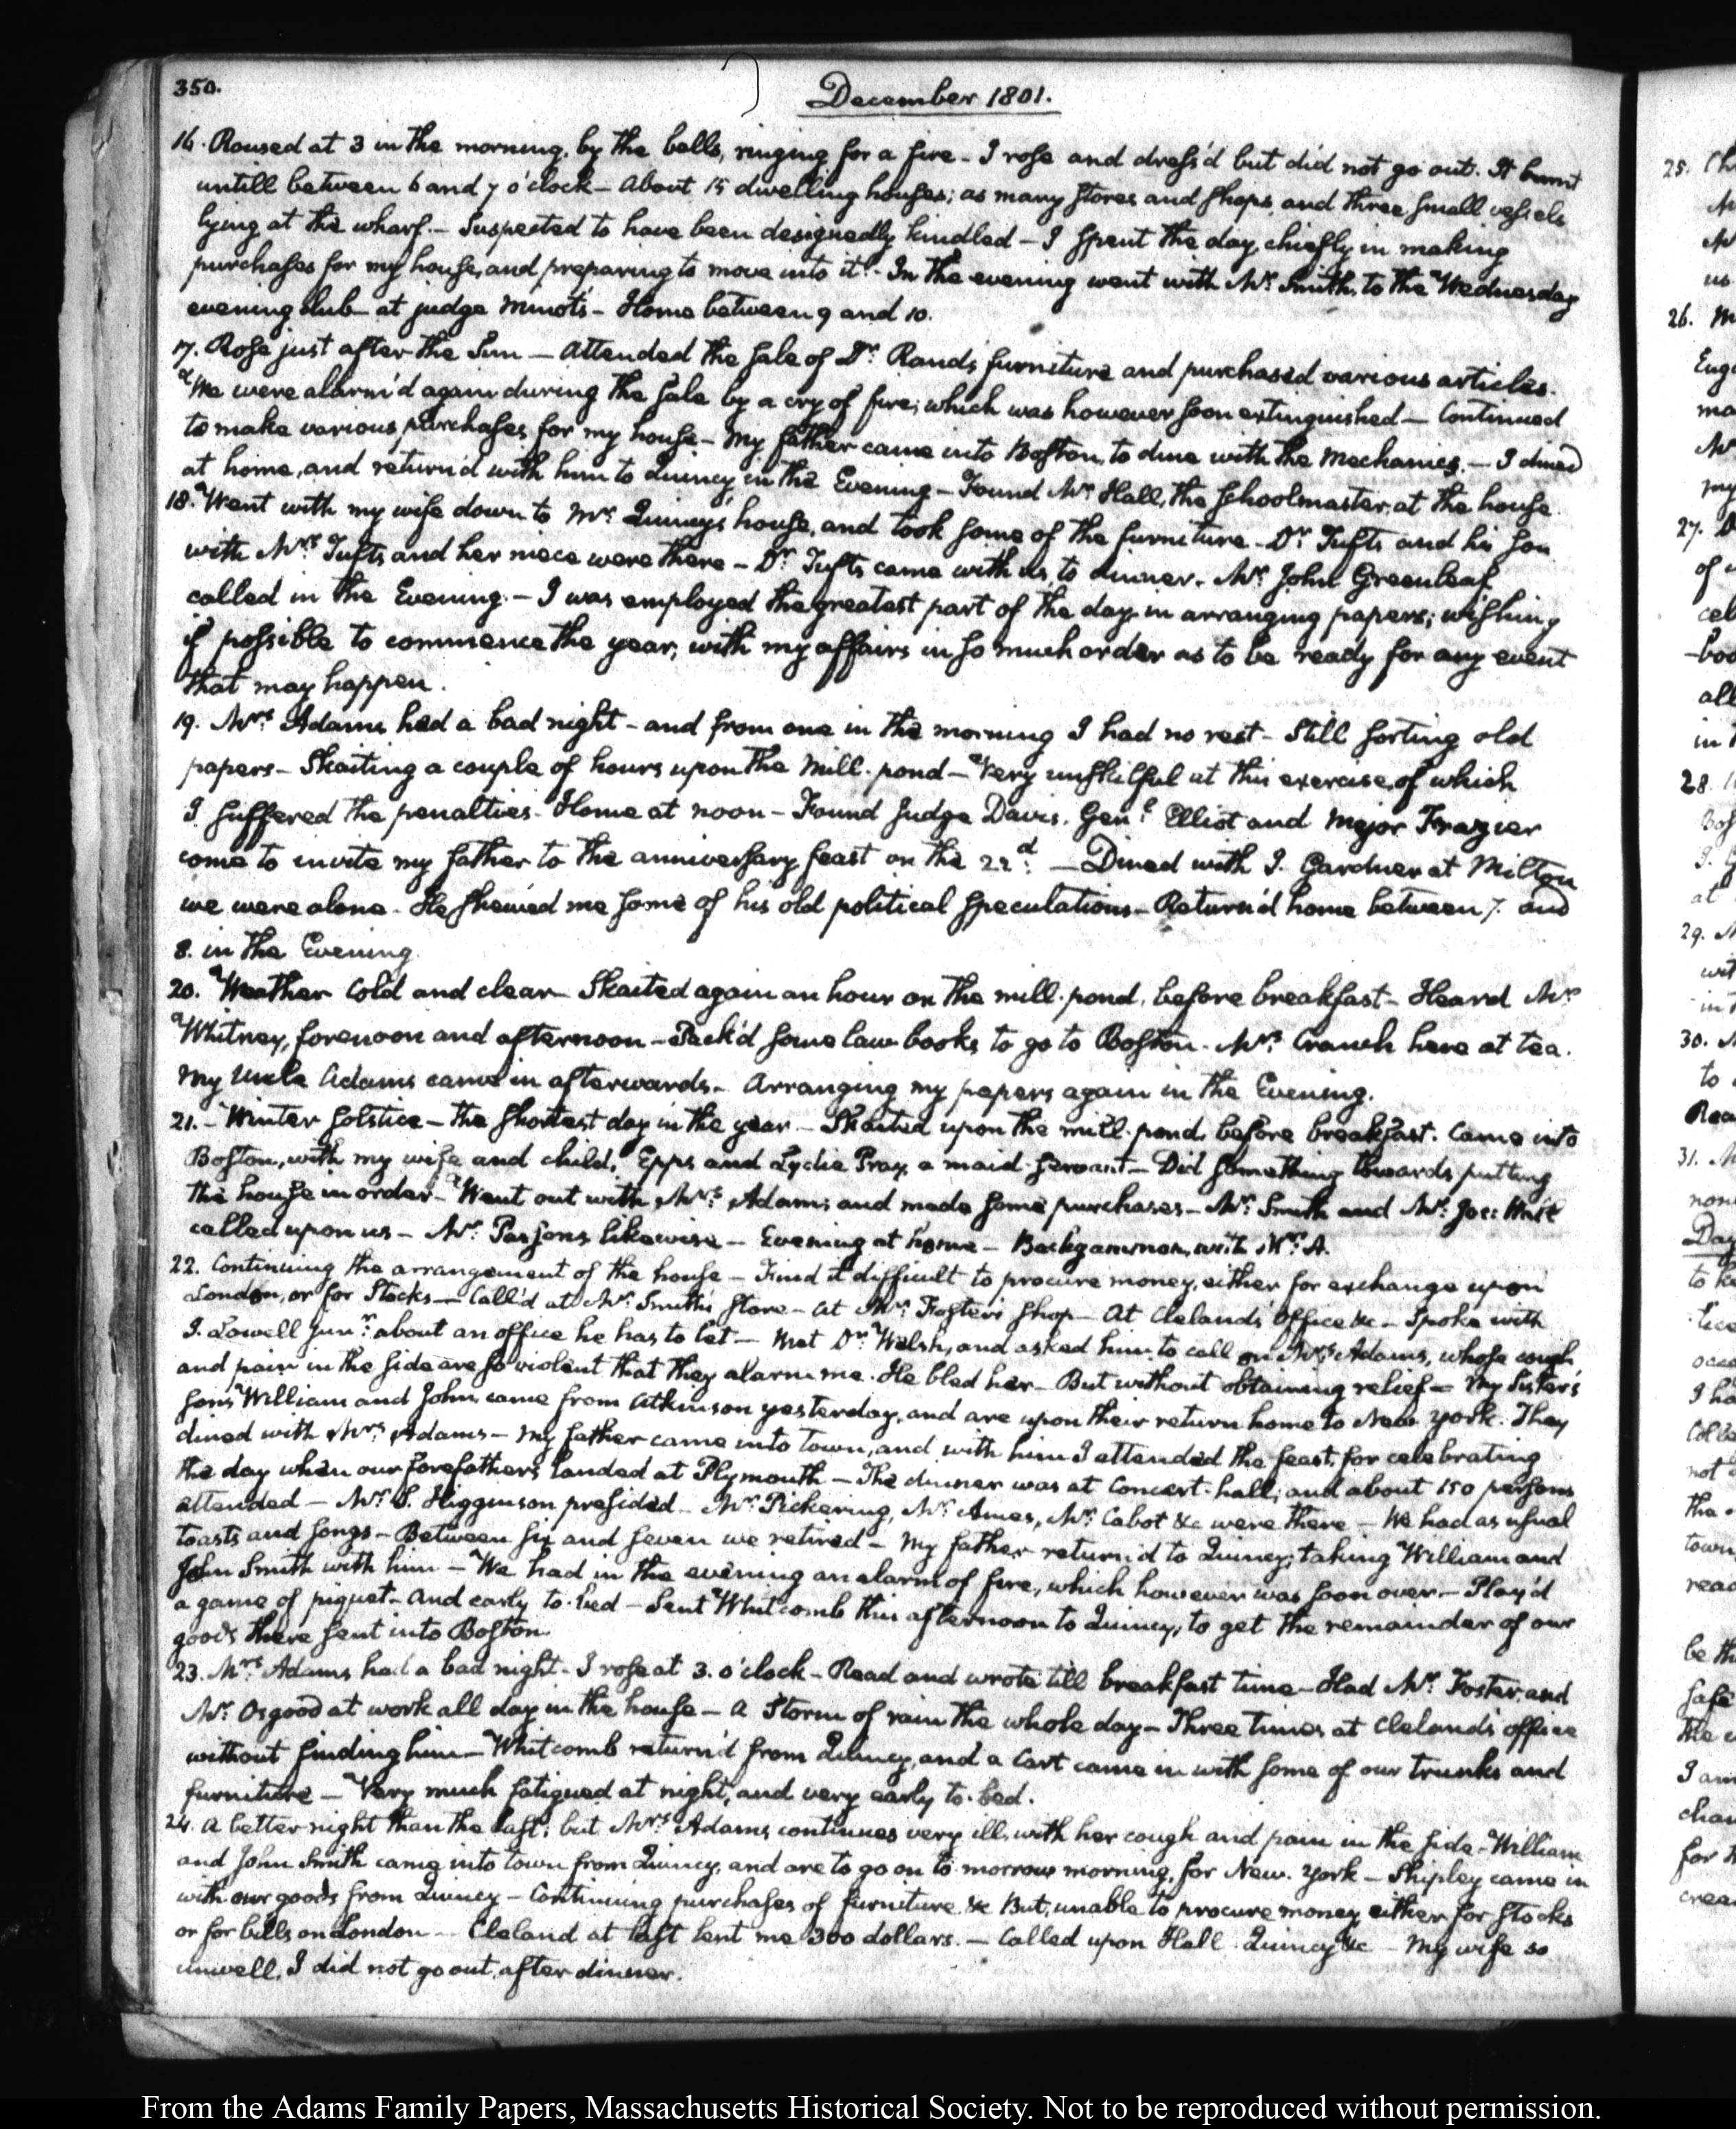 350.
December 1801.
16. Roused at 3 in the morning, by the bells, ringing for a fire - I rose and dress'd but did not go out. It burnt
untill between 6 and 7 o'clock - About 15 dwelling houses; as many stores and shops, and three small vessels
lying at the wharf. - Suspected to have been designedly kindled - I spent the day, chiefly in making
purchases for my house, and preparing to move into it. - In the evening went with Mr. Smith, to the Wednesday
evening Club at judge Minot's - Home between 9 and 10.
17. Rose just after the Sun - Attended the sale of Dr. Rand's furniture and purchased various articles.
We were alarm'd again during the sale by a cry of fire; which was however soon extinguished - Continued
to make various purchases for my house - My father came into Boston, to dine with the Mechanics. - I dined
at home, and return'd with him to Quincy, in the Evening - Found Mr. Hall, the schoolmaster, at the house.
18. Went with my wife down to Mr. Quincy's house, and took some of the furniture - Dr. Tufts and his son
with Mrs. Tufts and her niece were there - Dr. Tufts came with us, to dinner. Mr. John Greenleaf
called in the Evening. - I was employed the greatest part of the day, in arranging papers; wishing
if possible to commence the year, with my affairs in so much order as to be ready for any event
that may happen.
19. Mrs. Adams had a bad night - and from one in the morning I had no rest - Still sorting old
papers - Skaiting a couple of hours upon the Mill-pond - Very unskilful at this exercise, of which
I suffered the penalties. Home at noon - Found Judge Davis, Genl. Elliot and Major Frazier
come to invite my father to the anniversary feast on the 22d. - Dined with J. Gardner at Milton
we were alone. He shew'd me some of his old political speculations - Return'd home between 7. and
8. in the Evening
20. Weather Cold and clear - Skaited again an hour on the mill-pond, before breakfast - Heard Mr.
Whitney, forenoon and afternoon - Pack'd some law books to go to Boston. Mr. Cranch here at tea.
My Uncle Adams came in afterwards. - Arranging my papers again in the Evening.
21. - Winter Solstice - the shortest day in the year - Skaited upon the mill-pond, before breakfast. Came into
Boston, with my wife and child, Epps and Lydia Pray, a maid-servant - Did something towards putting
the house in order - Went out with Mrs. Adams and made some purchases - Mr. Smith and Mr. Jos: Hall
called upon us - Mr. Parsons likewise - Evening at home - Backgammon, with Mrs. A.
22. Continuing the arrangement of the house - Find it difficult to procure money, either for exchange upon
London, or for Stocks - Call'd at Mr. Smith's store - at Mr. Foster's shop - At Cleland's Office &c - Spoke with
J. Lowell Junr. about an office he has to let - Met Dr. Welsh, and asked him to call on Mrs. Adams, whose cough
and pain in the side are so violent that they alarm me. He bled her - But without obtaining relief - My Sister's
sons William and John, came from Atkinson yesterday, and are upon their return home to New York. They
dined with Mrs. Adams - My father came into town, and with him I attended the feast, for celebrating
the day when our forefathers landed at Plymouth - The dinner was at Concert-hall; and about 150 persons
attended - Mr. S. Higginson presided - Mr. Pickering, Mr. Ames, Mr. Cabot &c were there - We had as usual
toasts and songs - Between six and seven we retired - My father return'd to Quincy; taking William and
John Smith with him - We had in the evening an alarm of fire, which however was soon over - Play'd
a game of piquet - And early to bed - Sent Whitcomb this afternoon to Quincy, to get the remainder of our
goods there sent into Boston.
23. Mrs. Adams had a bad night - I rose at 3. o'clock - Read and wrote till breakfast time - Had Mr. Foster, and
Mr. Osgood at work all day in the house - A Storm of rain the whole day - Three times at Cleland's office
without finding him - Whitcomb return'd from Quincy, and a Cart came in with some of our trunks and
furniture - Very much fatigued at night, and very early to bed.
24. A better night than the last; but Mrs. Adams continues very ill, with her cough and pain in the side - William
and John Smith came into town from Quincy, and are to go on to morrow morning, for New-York - Shipley came in
with our goods from Quincy - Continuing purchases of furniture &c But, unable to procure money either for stocks
or for bills on London - Cleland at last lent me 300 dollars. - Called upon Hall Quincy &c - My wife so
unwell, I did not go out, after dinner.
25.
26.
27.
28.
29.
30.
31.
From the Adams Family Papers, Massachusetts Historical Society. Not to be reproduced without permission.